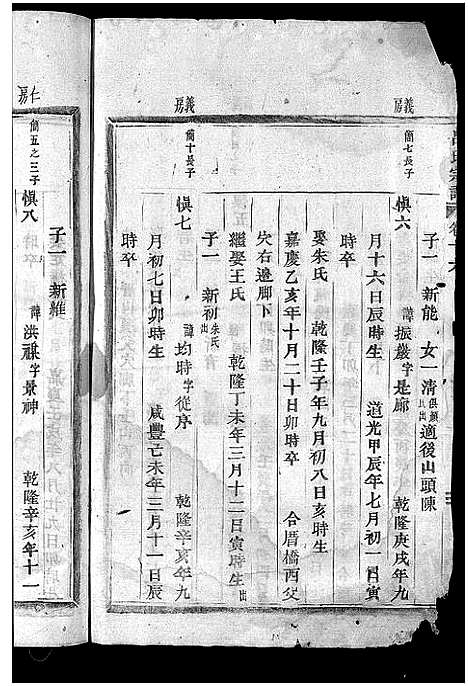 氏宗譜
義房
簡七長子
子一 新能 女一清俱娘出 適後山頭陳
慎六 諱振嚴字是廊 乾隆庚戌年九
月十六日辰時生 道光甲辰年七月初一日寅
時卒
娶朱氏 乾隆壬子年九月初八日亥時生
嘉慶乙亥年十月二十日卯時卒 合厝橋西父
穴右邊脚下
繼娶王氏 乾隆丁未年三月十二日寅時生出
子一 新初朱氏出
義房
簡十長子
慎七 諱均時字從序 乾隆辛亥年九
月初七日卯時生 咸豐己未年三月十一日辰
時卒
仁房
簡五之三子
子一 新維
慎八 諱洪禩字景神 乾隆辛亥年十一